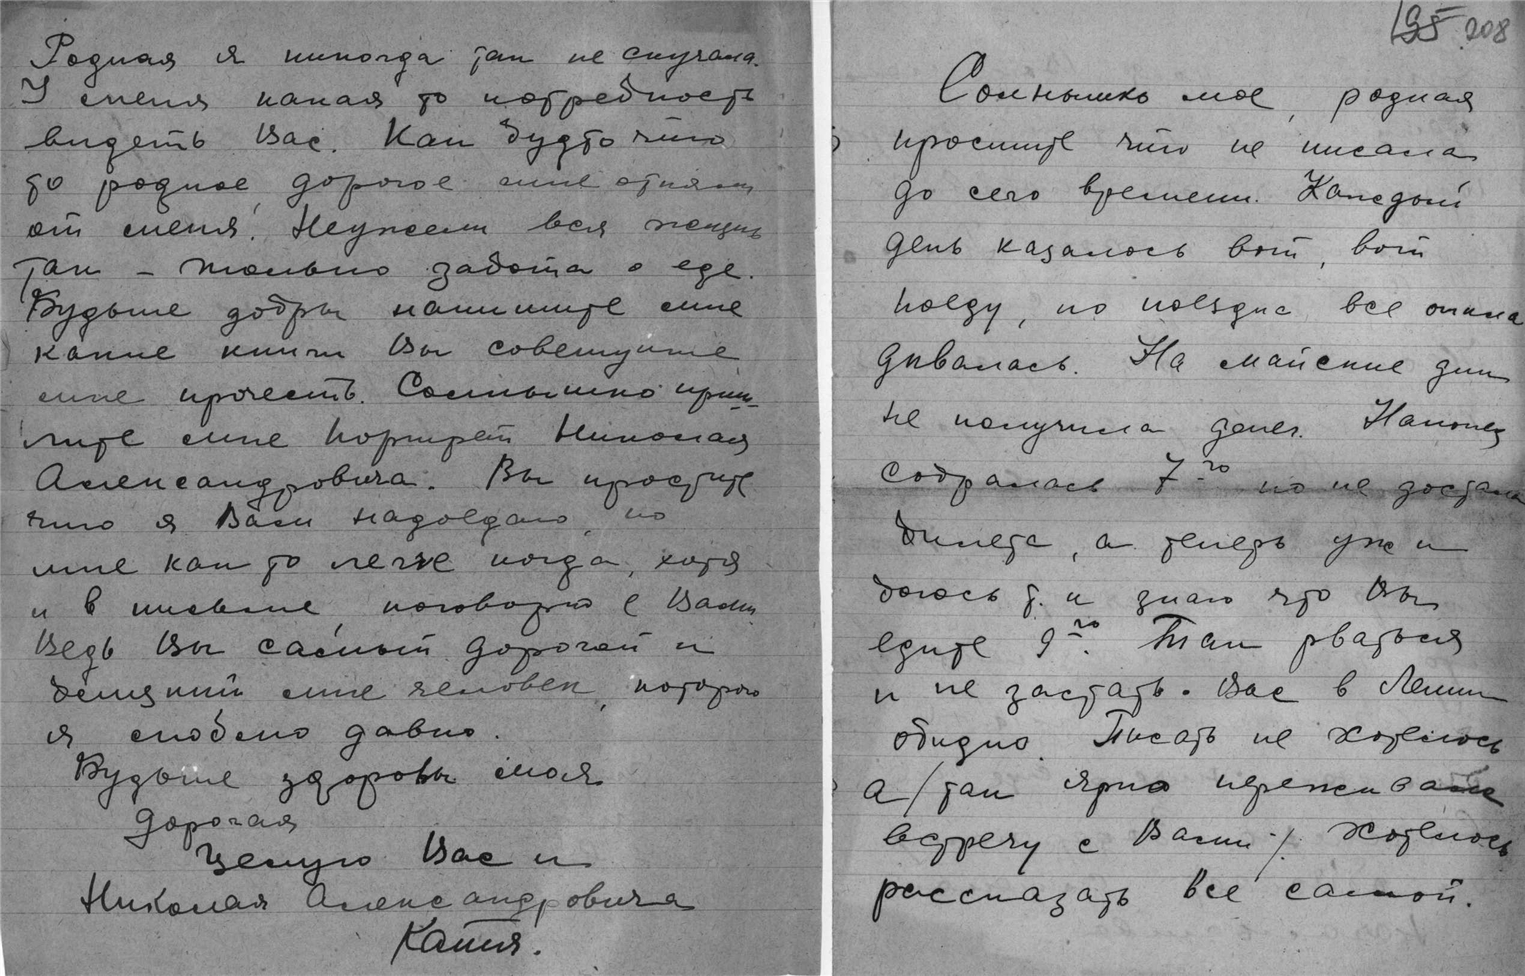 Родная я никогда так не скучала.
У меня какая то потребность
видеть Вас. Как будто что
то родное, дорогое мне отняли
от меня. Неужели вся жизнь
так – только забота о еде.
Будьте добры напишите мне
какие книги Вы советуете
мне прочесть. Солнышко приш-
лите мне портрет Николая
Александровича. Вы простите
что я Вам надоедаю, но
мне как то легче когда, хотя
и в письме, поговорю с Вами
Ведь Вы самый дорогой и
близкий мне человек, которого
я люблю давно.
Будьте здоровы моя
дорогая
Целую Вас и
Николая Александровича
Катя.
195 208
Солнышко мое, родная
простите что не писала
до сего времени. Каждый
день казалось вот, вот
поеду, но поездка все откла
дывалась. На майские дни
не получила денег. Наконец
собралась 7го но не достала
билета, а теперь уж и
боюсь т. к знаю что Вы
едите 9го. Так рваться
и не застать Вас в Ленин
обидно. Писать не хотелось
а /так ярко переживала
встречу с Вами/. Хотелось
рассказать все самой.